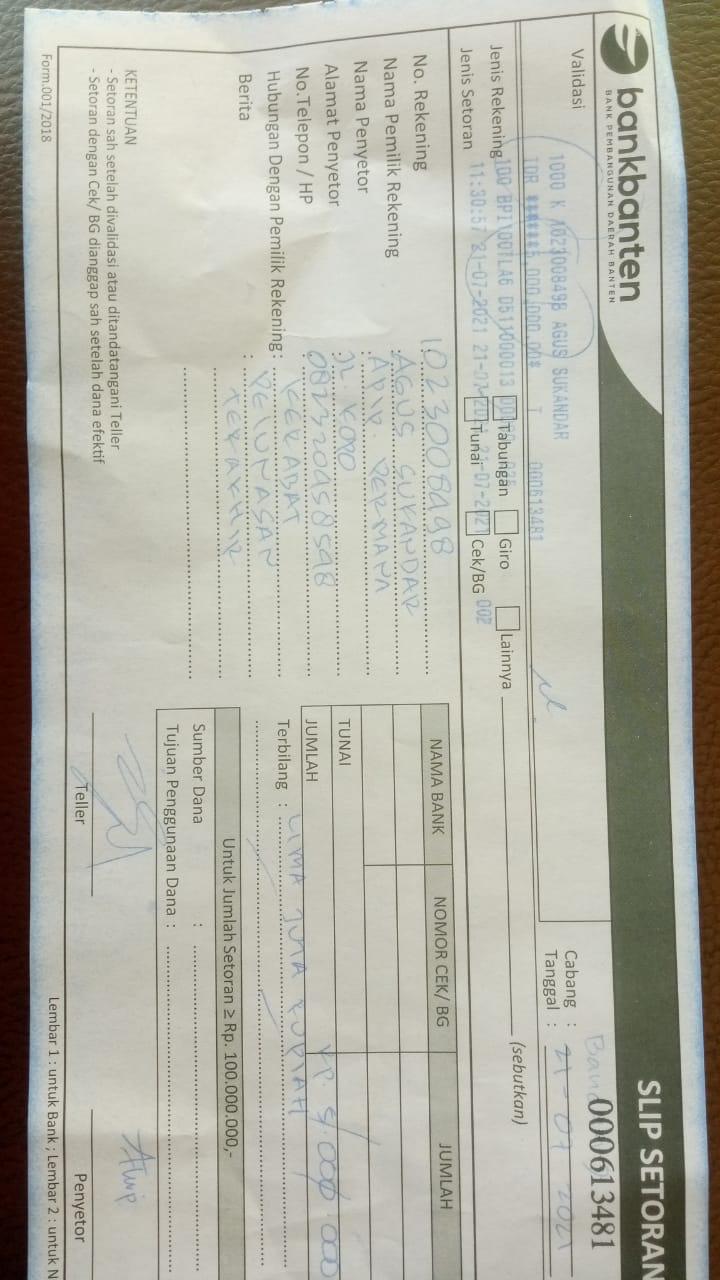 bankbanten
BANK PEMBANGUNAN DAERAH BANTEN
SLIP SETORAN
000613481
Validasi
1000 K A023008498 AGUS SUKANDAR
IDR ******5,000,000.00* T 000613481
100 BPI\007LA6 D511000013
11:30:57 21-07-2021 21-07-2021 21-07-2021 002
Cabang :
Tanggal : 21-07 2021
Jenis Rekening Tabungan Giro Lainnya (sebutkan)
Jenis Setoran Tunai Cek/BG
No. Rekening : 1023008498
Nama Pemilik Rekening : AGUS SUKANDAR
Nama Penyetor : PERMANA
Alamat Penyetor : JL. KOPO
No.Telepon / HP : 082320958598
Hubungan Dengan Pemilik Rekening : KERABAT
Berita : PELUNASAN
TERAKHIR
NAMA BANK NOMOR CEK/ BG JUMLAH
TUNAI
JUMLAH RP. 5,000.000
Terbilang : LIMA JUTA RUPIAH
Untuk Jumlah Setoran ≥ Rp. 100.000.000,-
Sumber Dana :
Tujuan Penggunaan Dana :
KETENTUAN
- Setoran sah setelah divalidasi atau ditandatangani Teller
- Setoran dengan Cek/ BG dianggap sah setelah dana efektif
Teller
Penyetor
Form.001/2018
Lembar 1 : untuk Bank ; Lembar 2 : untuk N